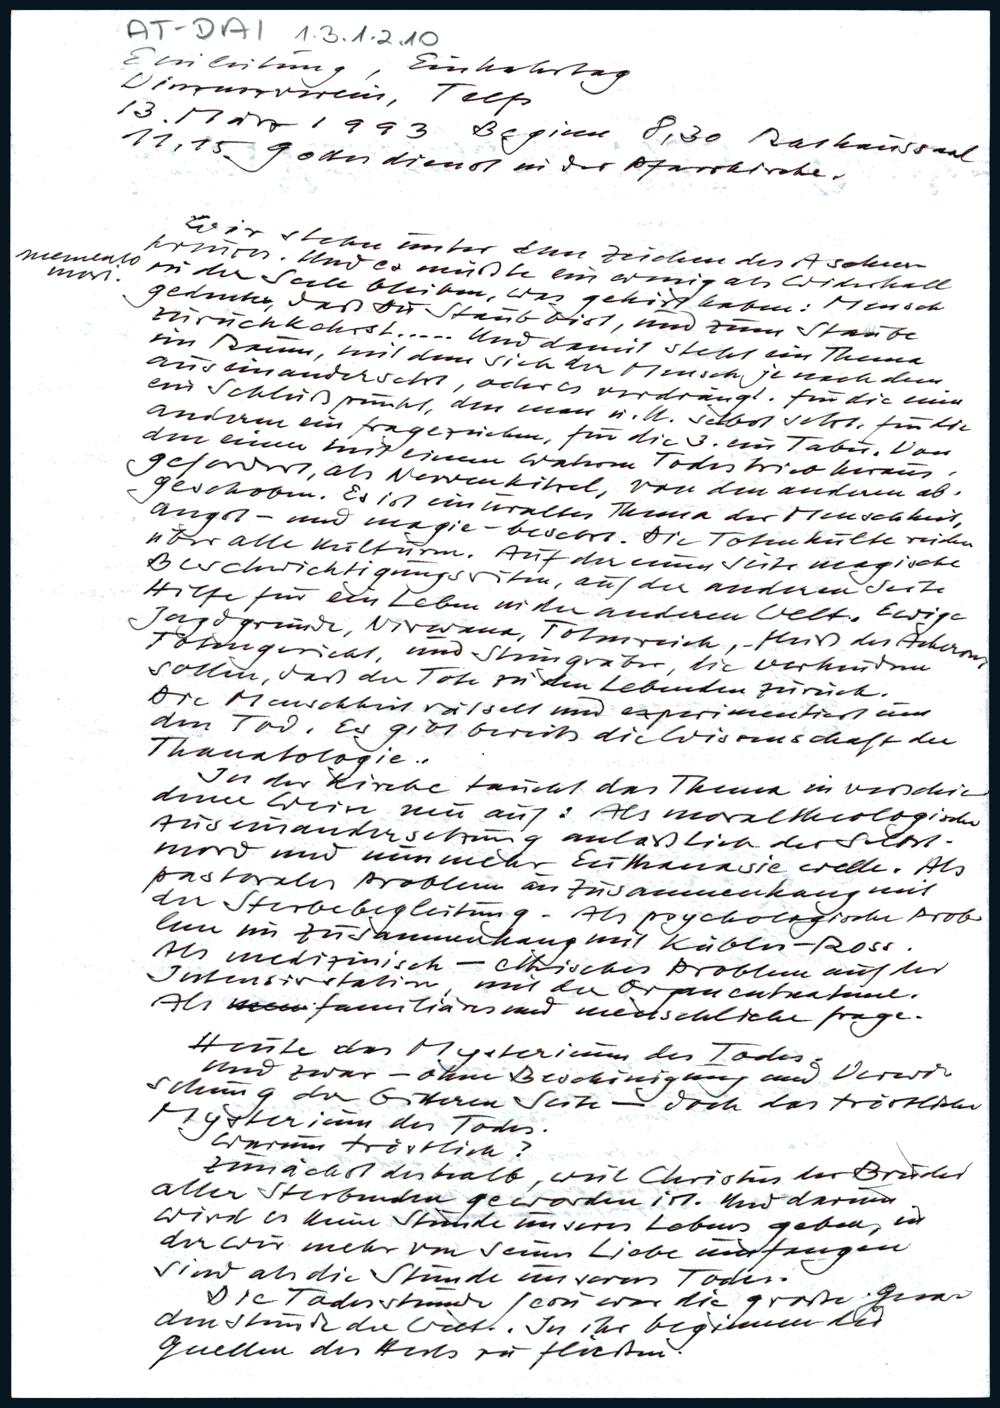 AT-DAI 1.3.1.2.10
Einleitung, Einkehrtag
Vinzenzverein, Telfs
13. März 1993 Beginn 8,30 Rathaussaal
11,15 Gottesdienst in der Pfarrkirche.
Wir stehen unter dem Zeichen des Aschen-
kreuzes. Und es müßte ein wenig als Widerhall
memento
mori.
in der Seele bleiben, was gehört haben: Mensch
gedenke, daß Du Staub bist, und zum Staube
zurückkehrst..... Und damit steht ein Thema
im Raum, mit dem sich der Mensch je nachdem
auseinandersetzt, oder es verdrängt. für die einen
ein Schlußpunkt, den man u.U. selbst setzt. für die
anderen ein fragezeichen, für die 3. ein Tabu. Von
den einen mit einem wahren Todestrieb heraus-
gefordert, als Nervenkitzel, von den anderen ab-
geschoben. Es ist ein uraltes Thema der Menschheit,
angst - und magie - besetzt. Die Totenkulte reichen
über alle Kulturen. Auf der einen Seite magische
Beschwichtigungsriten, auf der anderen Seite
Hilfe für ein Leben in der anderen Welt. Ewige
Jagdgründe, Nirwana, Totenreich, - fluß des Acheron,
Totengericht, und Steingräber, die verhindern
sollen, daß der Tote zu den Lebenden zurück.
Die Menschheit rätselt und experimentiert um
den Tod. Es gibt bereits die Wissenschaft der
Thanatologie.
In der Kirche taucht das Thema in verschie-
dener Weise neu auf: Als moraltheologische
Auseinandersetzung anläßlich der Selbst-
mord und nunmehr Euthanasiewelle. Als
pastorales Problem im Zusammenhang mit
der Sterbebegleitung - Als psychologische Prob-
lem im Zusammenhang mit Kübler-Ross.
Als medizinisch - ethisches Problem auf der
Intensivstation, mit der Organentnahme.
Als familiäre und menschliche frage.
Heute das Mysterium des Todes.
Und zwar - ohne Beschönigung und Verwi-
schung der bitteren Seite - doch das tröstliche
Mysterium des Todes.
Warum tröstlich?
Zunächst deshalb, weil Christus der Bruder
aller Sterbenden geworden ist. Und darum
wird es keine Stunde unseres Lebens geben, in
der wir mehr von seiner Liebe umfangen
sind als die Stunde unseres Todes.
Die Todesstunde Jesu war die große Gna-
denstunde der Welt. In ihr beginnen die
Quellen des Heils zu fließen.